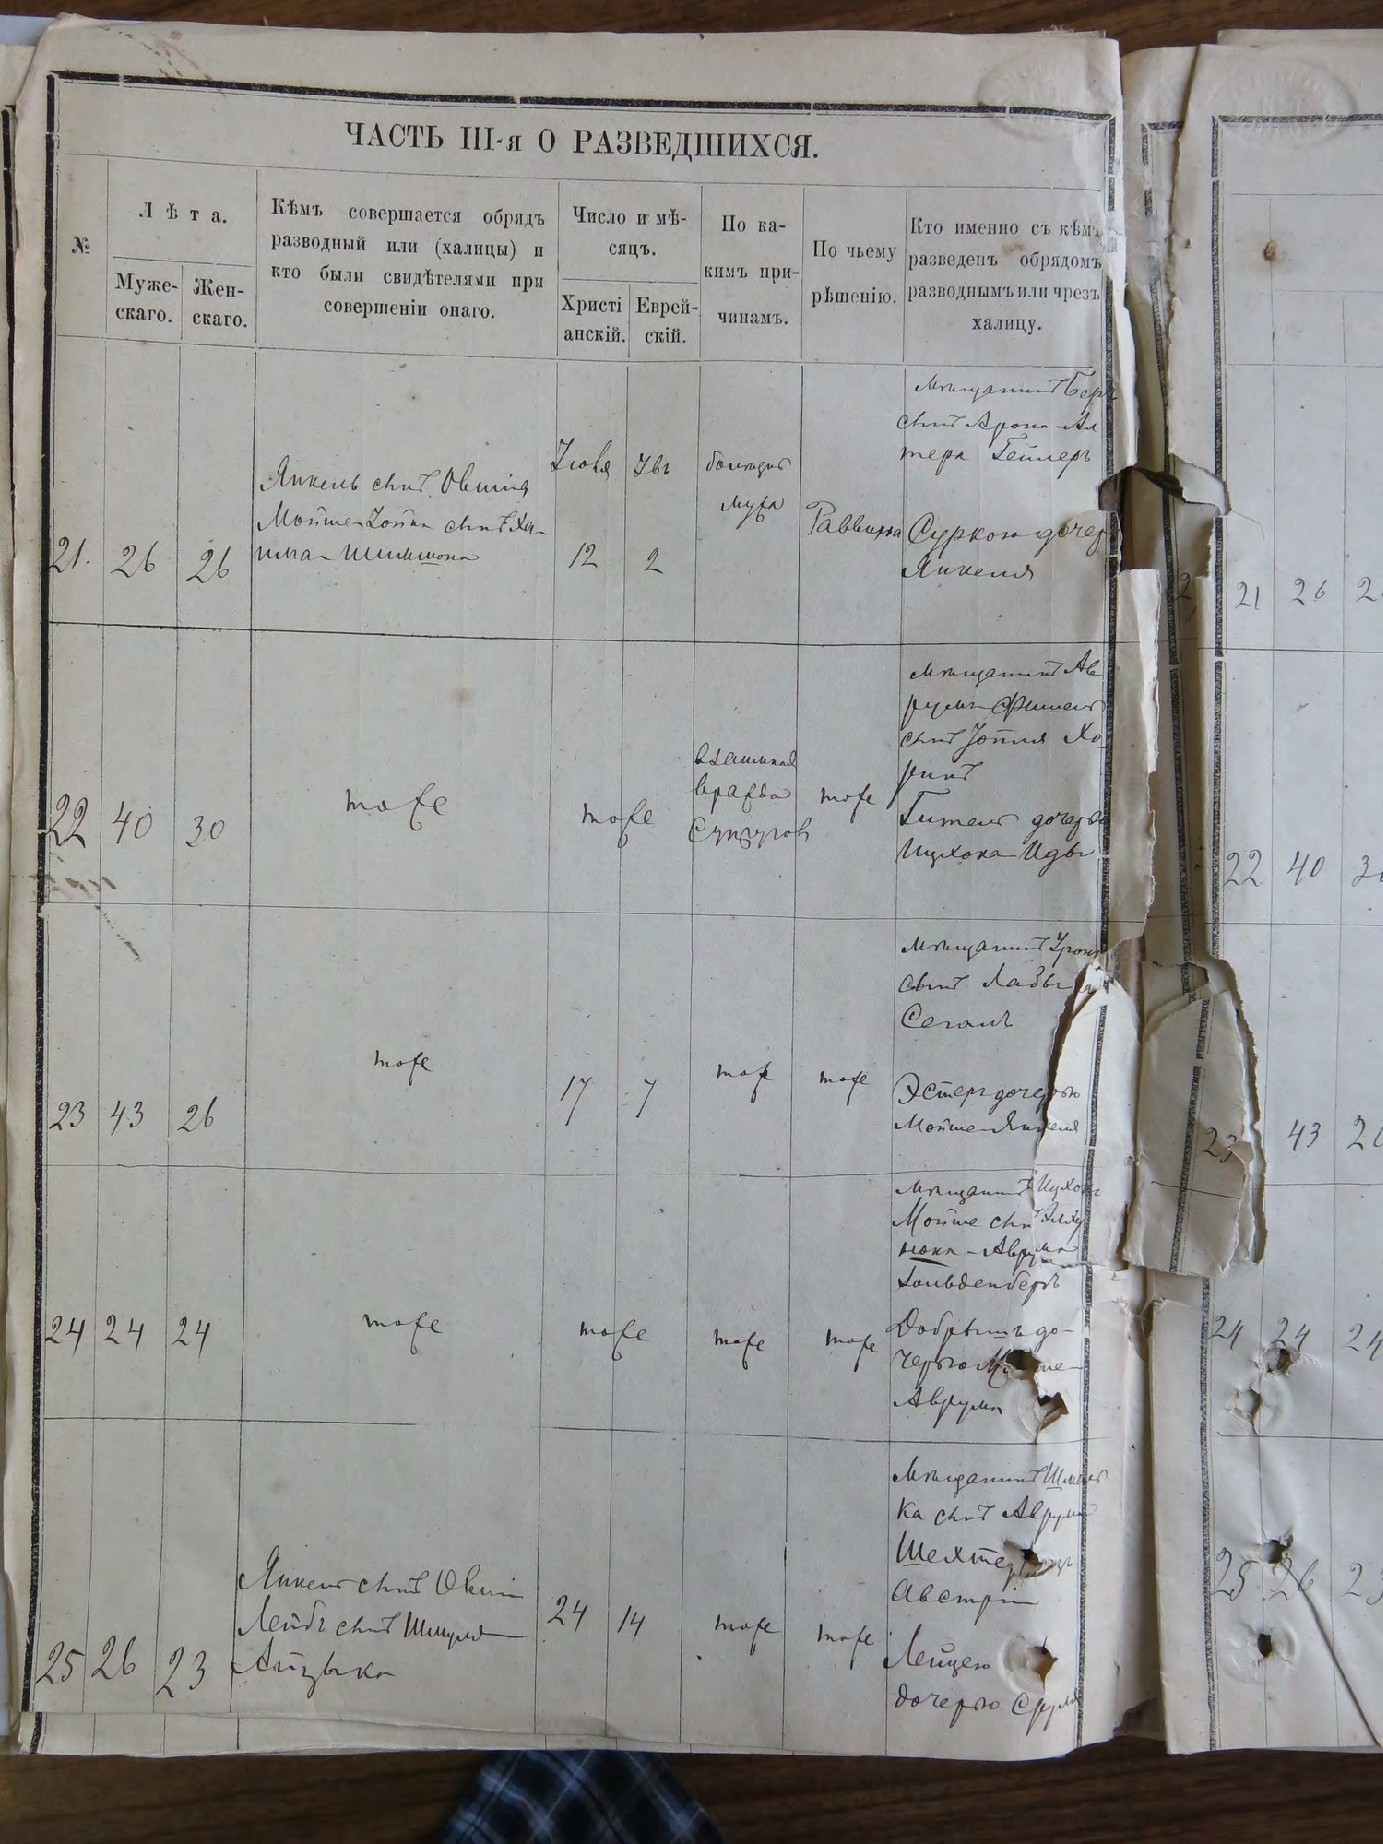 ЧАСТЬ III-я О РАЗВЕДШИХСЯ.
№
Лѣта.
Муже-
скаго.
Жен-
скаго.
Кѣмъ совершается обрядъ
разводный или (халицы) и
кто были свидѣтелями при
совершеніи онаго.
Число и мѣ-
сяцъ.
Христі
анскій.
Еврей-
скій.
По ка-
кимъ при-
чинамъ.
По чьему
рѣшенію.
Кто именно съ кѣмъ
разведенъ обрядомъ
разводнымъ или чрезъ
халицу.
21. 26 26
Янкель сынъ Овшія
Мойше сынъ
12 2
мужа
Раввина
Мѣщанинъ Беръ
сынъ Арона-Ал
тера Геллеръ
Суркою дочер
Янкеля
22 40 30
тоже
тоже
взаимная
вражда
супругов
тоже
Мѣщанинъ Ав
румъ
сынъ
Гителъ дочерью
Ицхока
23 43 26
тоже
17 7
тоже
тоже
Мѣщанинъ
сынъ
Сегалъ
Эстеръ дочерью
Мойше-Янкеля
24 24 24
тоже
тоже
тоже
тоже
Мѣщанинъ Ицхокъ
Мойше сынъ
Аврума
Гольденберъ
Добрышъ до-
черью
Аврума
25 26 23
Янкель сынъ Овшія
Лейбъ сынъ Шмуля
Айзыка
24 14
тоже
тоже
Мѣщанинъ
ка сынъ Аврума
Австріи
Лейцею
дочерью Сруля
21 26 2
22 40 3
23 43 2
24 24 24
25 26 23